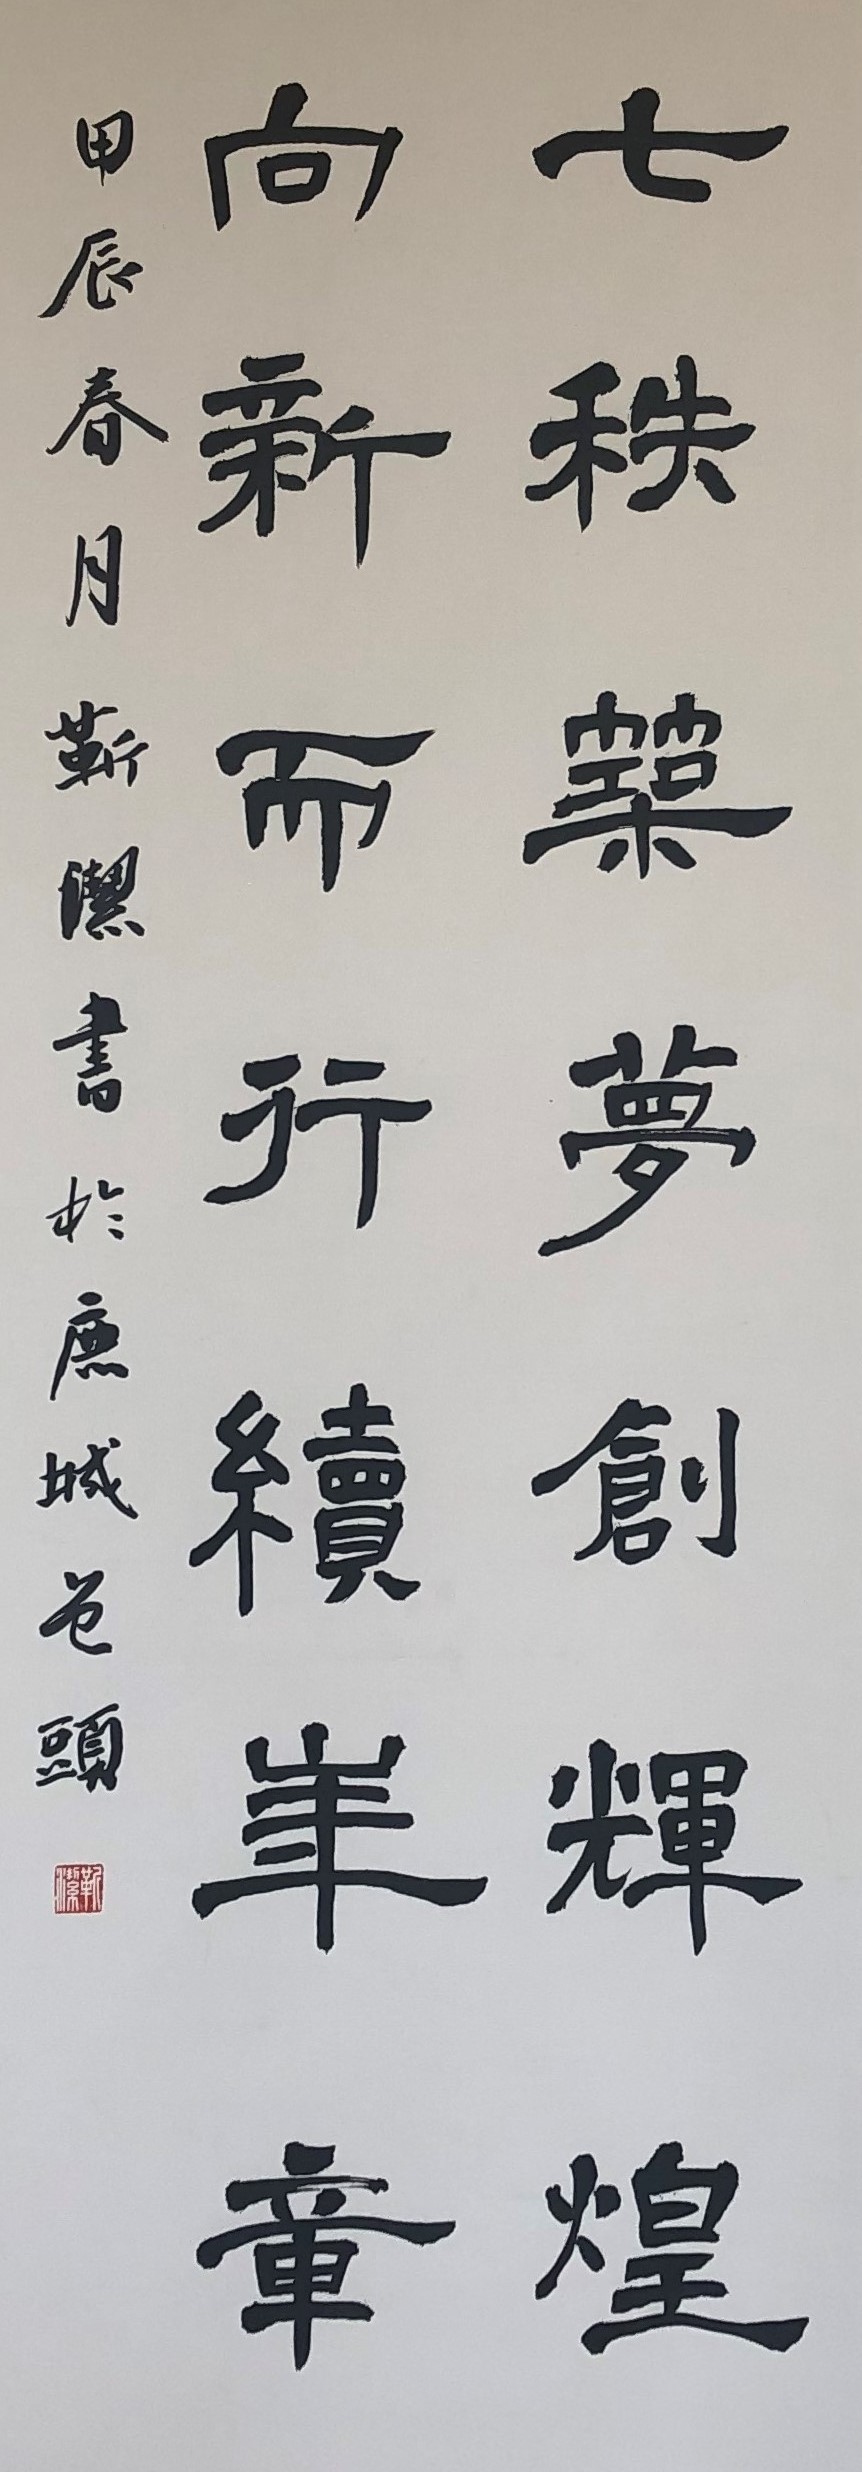 七秩築夢創輝煌
向新而行續華章
甲辰春月靳潔書於鹿城包頭
靳潔